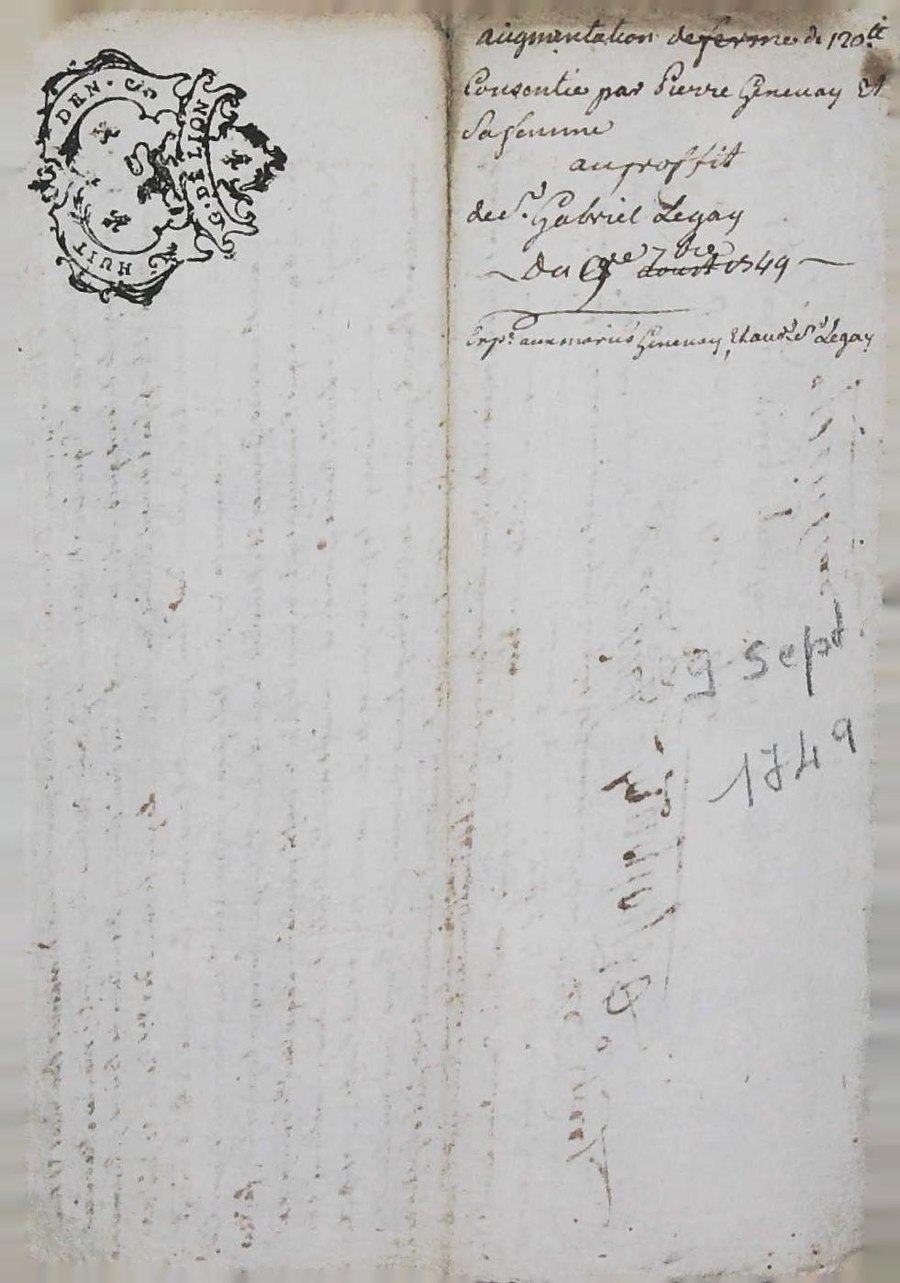 HUIT DEN.
G. DE LION
augmentation de ferme de 120 ᵗᵗ
Consentie par Pierre Genevay Et
Sa femme
au proffit
de Sʳ. Gabriel Legay
Du 9ᵉ 7bre aoust 1749
Expᵉ aux mariés Genevay, Et aud. Sʳ Legay
9 sept
1749